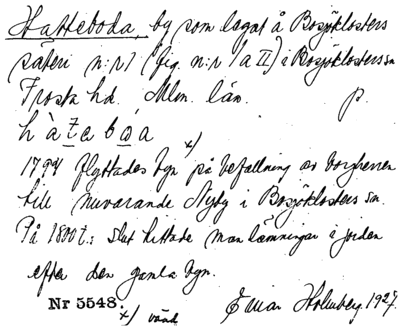 Hatteboda, by som legat å Bosjöklosters
säteri n:r 1 (fig. n:r 1 a II) i Bosjöklosters sn
Frosta hd. Mlm. län. p.
h à t e b ω a
x)
1794 flyttades byn på befallning av borgherren
till nuvarande Nyby i Bosjöklosters sn.
På 1800 t:s slut hittade man lämningar i jorden
efter den gamla byn.
Nr 5548. x) vänd Einar Holmberg. 1927.